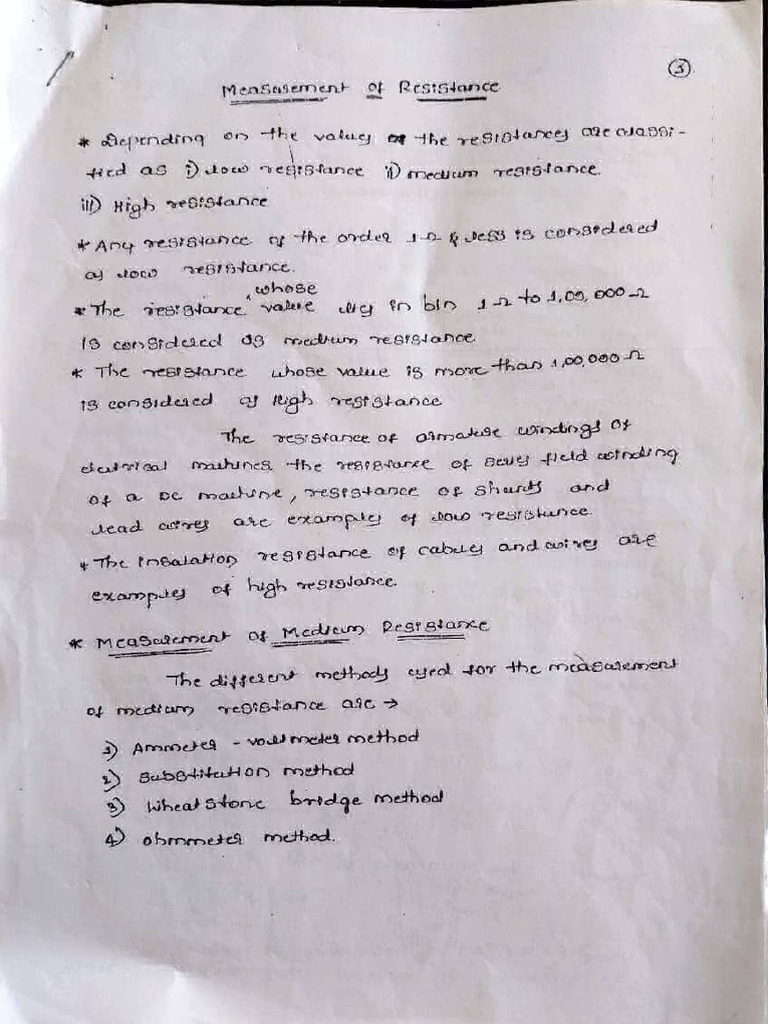 3
Measurement of Resistance
* Depending on the values of the resistances are classi-
fied as i) low resistance ii) medium resistance.
iii) High resistance
* Any resistance of the order 1Ω & less is considered
as low resistance.
whose
* The resistance value lies in b/n 1Ω to 1,00,000Ω
is considered as medium resistance
* The resistance whose value is more than 1,00,000Ω
is considered as High resistance
The resistance of armature windings of
electrical machines the resistance of series field winding
of a DC machine, resistance of shunts and
lead wires are examples of low resistance.
* The Insulation resistance of cables and wires are
examples of high resistance.
* Measurement of Medium Resistance
The different methods used for the measurement
of medium resistance are →
1) Ammeter - voltmeter method
2) Substitution method
3) Wheatstone bridge method
4) ohmmeter method.